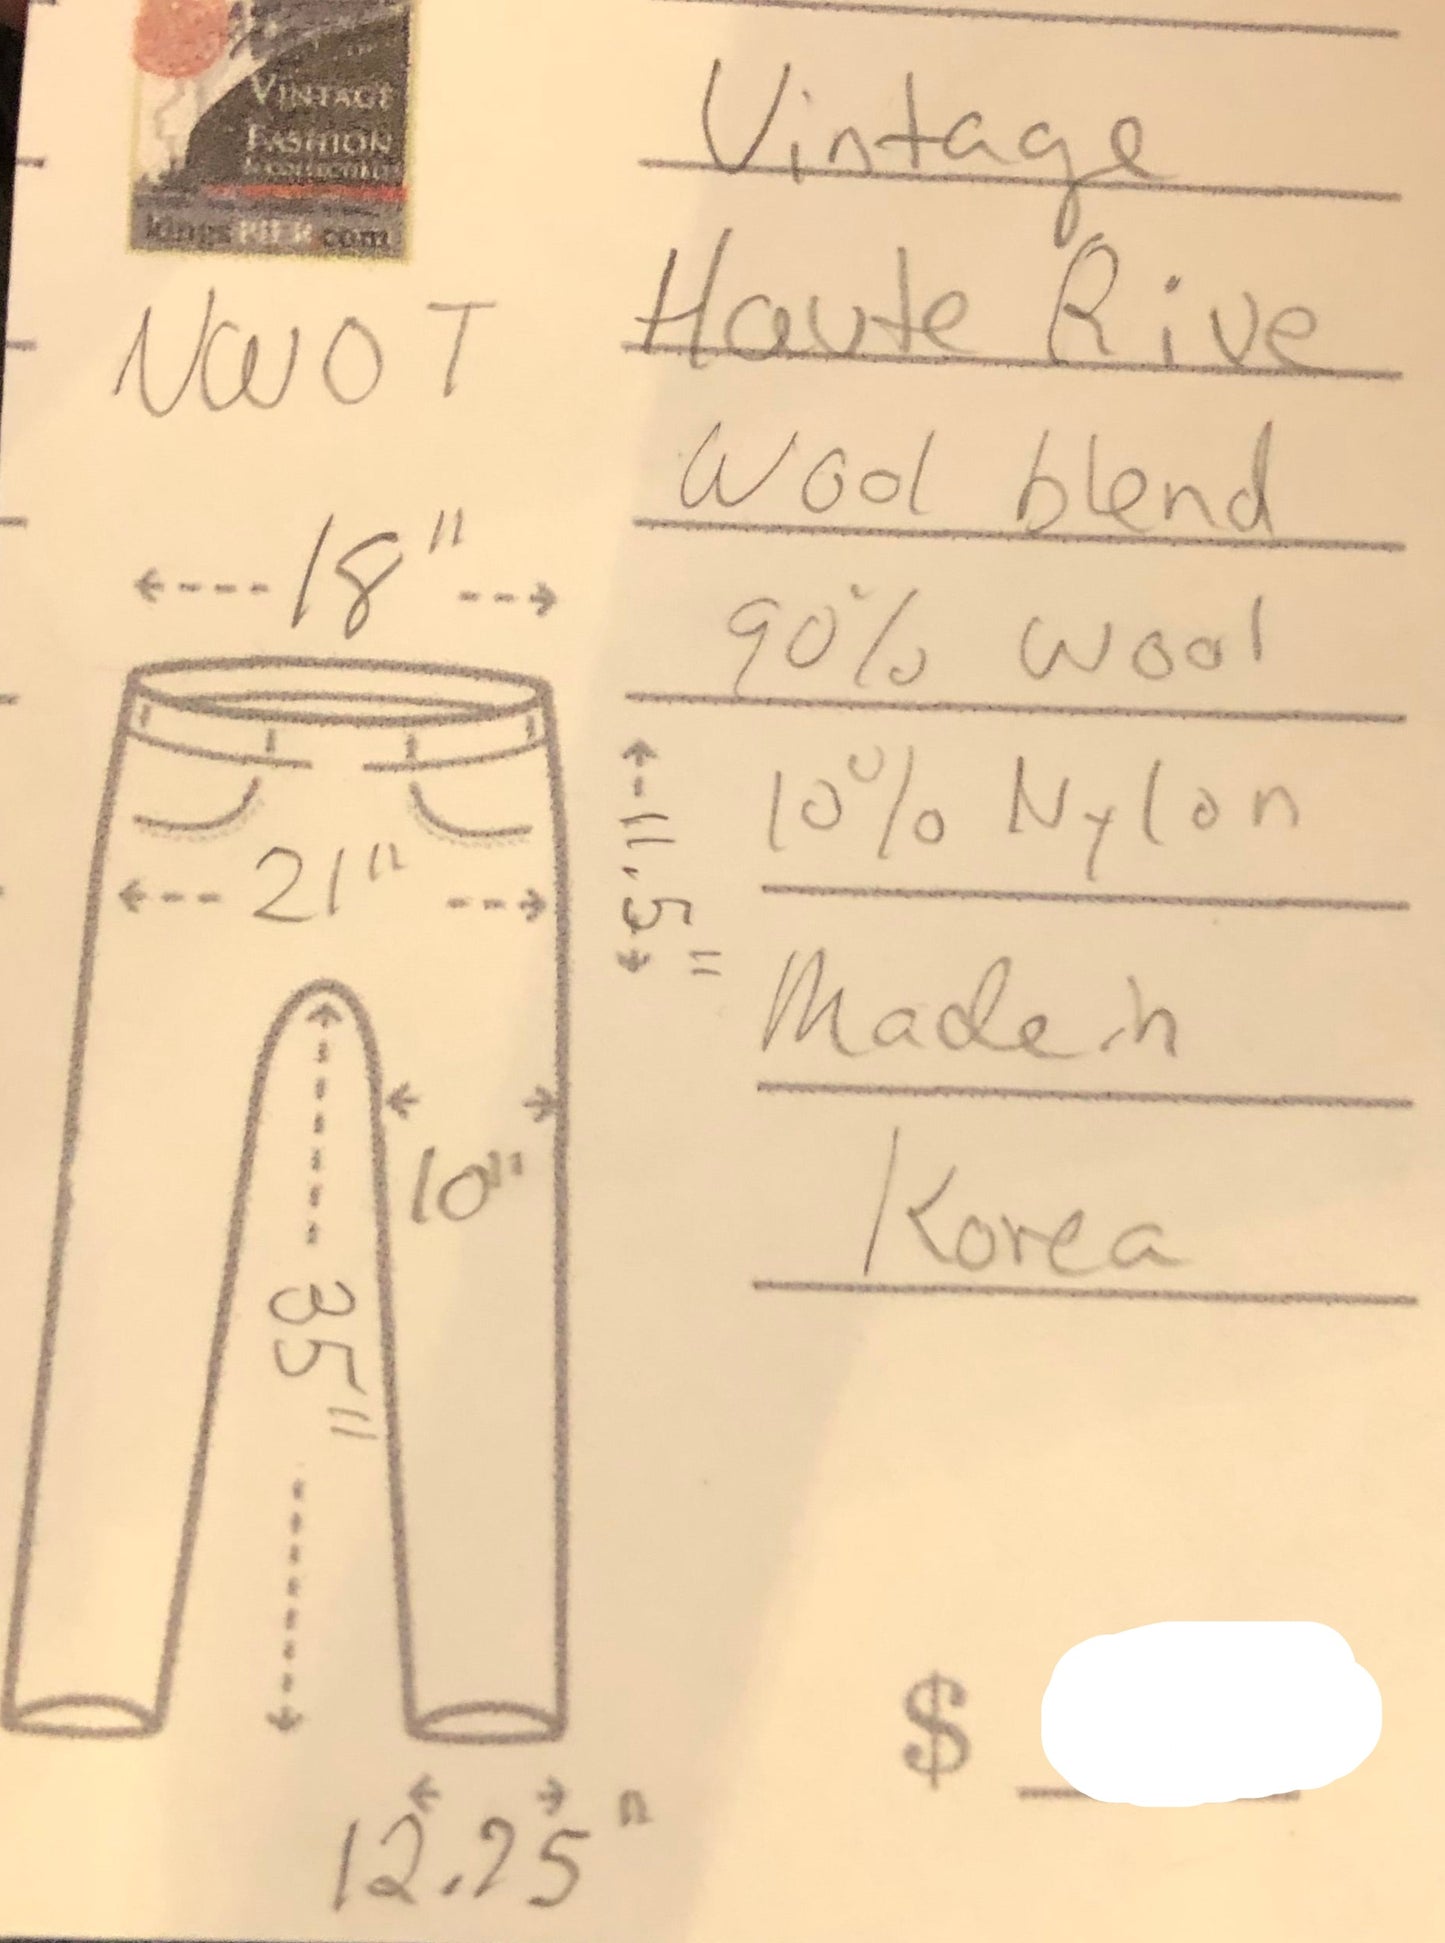 VINTAGE
FASHION
& COLLECTIBLES
kingsPIER.com
NWOT
Vintage
Haute Rive
Wool blend
90% wool
10% Nylon
Made in
Korea
18"
21"
11.5"
10"
35"
12.25"
$